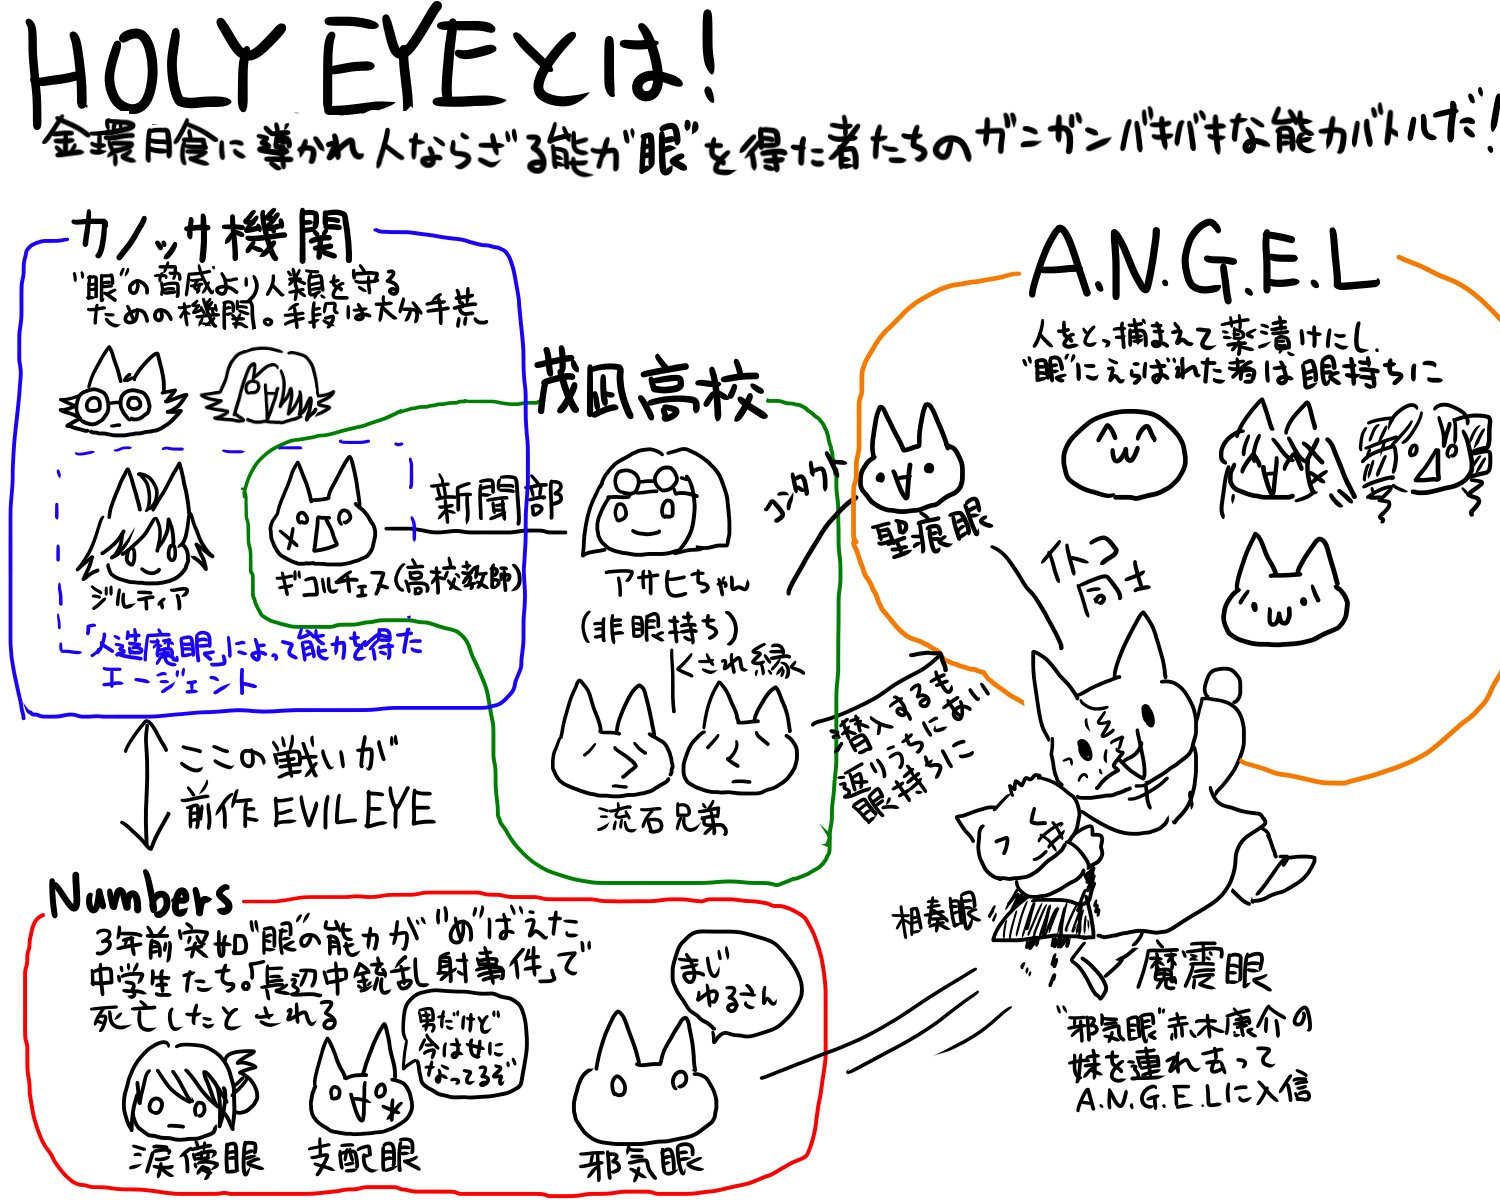 HOLY EYEとは!
金環月食に導かれ人ならざる能力"眼"を得た者たちのガンガンバキバキな能力バトルだ!
カノッサ機関
"眼"の脅威より人類を守る
ための機関。手段は大分手荒
ジルティア
ギコルチェス(高校教師)
「人造魔眼」によって能力を得た
エージェント
茂凪高校
新聞部
アサヒちゃん
(非眼持ち)
くされ縁
流石兄弟
コンタクト
潜入するも
返りうちにあい
眼持ちに
A.N.G.E.L
人をとっ捕まえて薬漬けにし、
"眼"にえらばれた者は眼持ちに
聖痕眼
仆コ
同士
相奏眼
魔震眼
"邪気眼"赤木康介の
妹を連れ去って
A.N.G.E.Lに入信
ここの戦いが
前作EVILEYE
Numbers
3年前突如"眼"の能力が"め"ばえた
中学生たち。「長辺中銃乱射事件」で
死亡したとされる
涙儚眼
男だけど
今は女に
なってるぞ
支配眼
まじ
ゆるさん
邪気眼